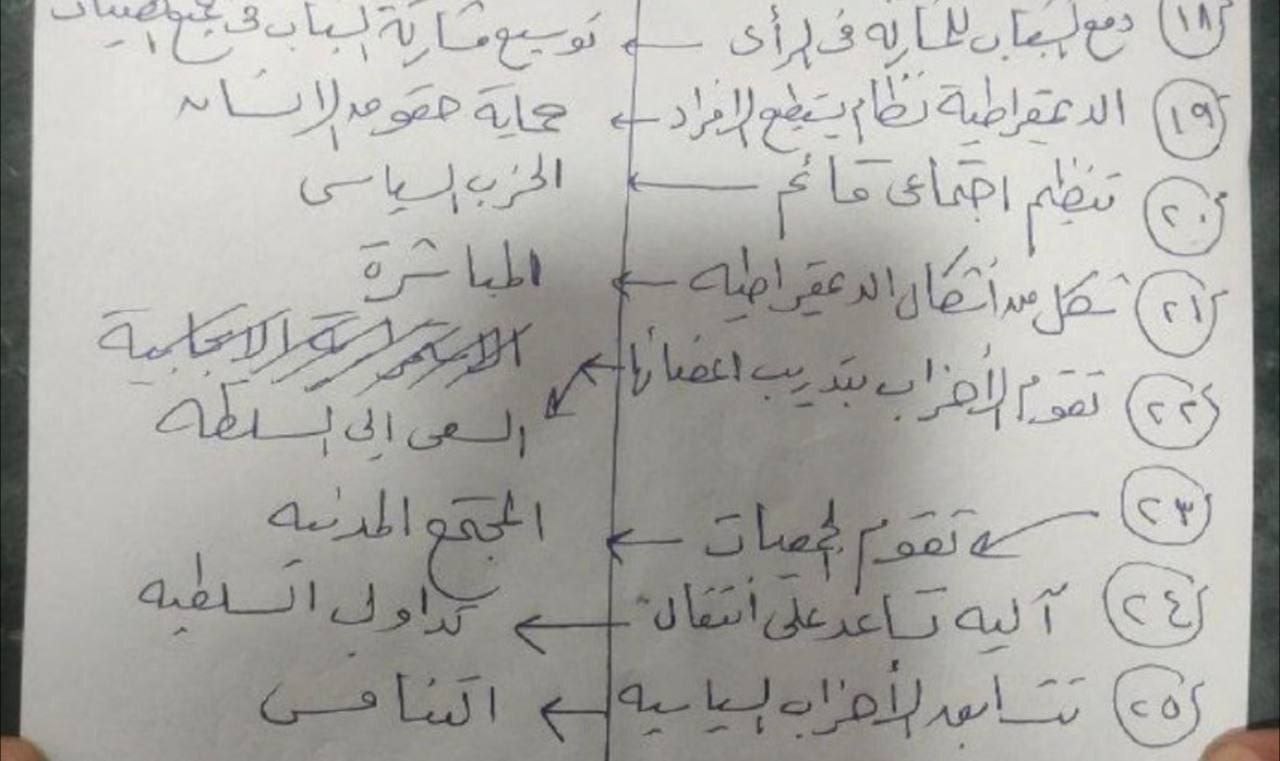 (١٨) دفع الشباب للمشاركة فى الرأى ← توسيع مشاركة الشباب فى جميع
(١٩) الديمقراطية نظام يستطيع الافراد ← حماية حقوق الإنسان
(٢٠) تنظيم اجتماعى قائم ← الحزب السياسى
(٢١) شكل من أشكال الديمقراطيه ← المباشرة
(٢٢) تقوم الأحزاب بتدريب اعضائها ← السعى إلى السلطه
(٢٣) تقوم ← المجتمع المدنى
(٢٤) آليه تساعد على أنتقال ← تداول السلطه
(٢٥) الأحزاب السياسيه ← التنافس